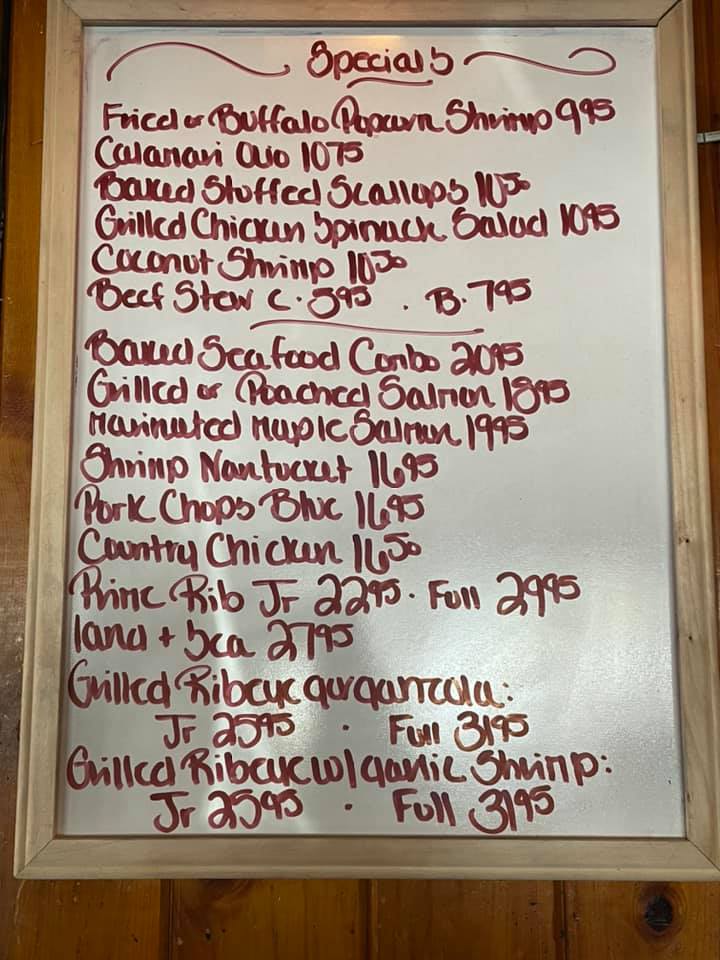 Specials
Fried or Buffalo Popcorn Shrimp 995
Calamari Aio 1075
Baked Stuffed Scallops 1050
Grilled Chicken Spinach Salad 1095
Coconut Shrimp 1050
Beef Stew C. 595 . B. 795
Baked Seafood Combo 2095
Grilled or Poached Salmon 1895
Marinated Maple Salmon 1995
Shrimp Nantucket 1695
Pork Chops Blue 1695
Country Chicken 1650
Prime Rib Jr 2295. Full 2995
land + Sea 2795
Grilled Ribeye gorganzola:
Jr 2595 . Full 3195
Grilled Ribeye w/ garlic Shrimp:
Jr 2595 . Full 3195